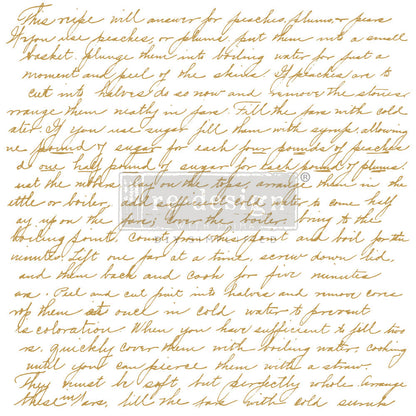 This recipe will answer for peaches, plums, or pears
If you use peaches, or plums, put them into a small
basket, plunge them into boiling water for just a
moment and peel of the skins. If peaches are to
cut into halves do so now and remove the stones
rrange them neatly in jars. Fill the jars with cold
ater. If you use sugar fill them with syrup, allowing
ne pound of sugar for each four pounds of peaches
d one half pound of sugar for each pound of plums.
ust the rubbers, lay on the tops, arrange them in the
ettle or boiler, add cold water to come half
ay up on the jars; cover the boiler, bring to the
boiling point, count from this point and boil for
minutes. Lift one jar at a time, screw down lid,
and then back and cook for five minutes
ars. Peel and cut fruit into halves and remove cores
rop them at once in cold water to prevent
is coloration. When you have sufficient to fill two
rs, quickly cover them with boiling water, cooking
until you can pierce them with a straw
They must be soft, but perfectly whole. Arrange
these in jars, fill the jars with cold
re·design
®